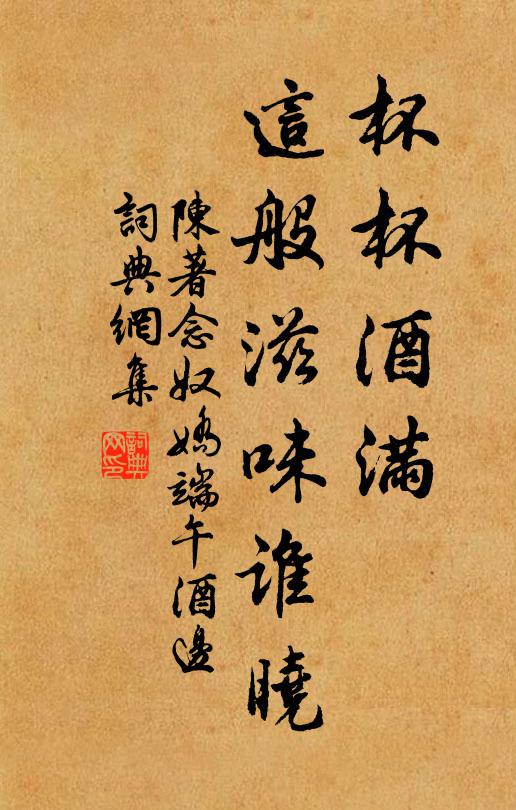 杯杯酒滿
這般滋味誰曉
陳著念奴嬌端午酒邊
詞典網集
詞典網印